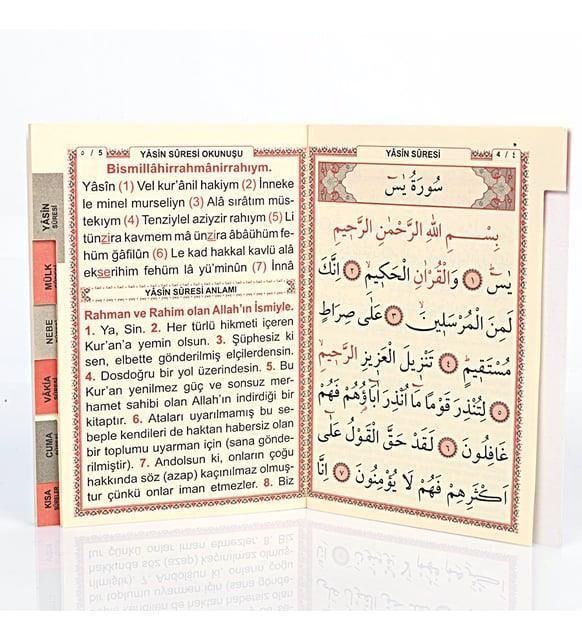 ٥ / 5
YÂSİN SÛRESİ OKUNUŞU
Bismillâhirrahmânirrahıym.
Yâsîn (1) Vel kur'ânil hakiym (2) İnneke
le minel murseliyn (3) Alâ sırâtım müs-
tekıym (4) Tenziylel aziyzir rahıym (5) Li
tünzira kavmem mâ ünzira âbâühüm fe-
hüm ğâfilûn (6) Le kad hakkal kavlü alâ
ekserihim fehüm lâ yü'minûn (7) İnnâ
YÂSİN SÛRESİ ANLAMI
Rahman ve Rahim olan Allah'ın İsmiyle.
1. Ya, Sin. 2. Her türlü hikmeti içeren
Kur'an'a yemin olsun. 3. Şüphesiz ki
sen, elbette gönderilmiş elçilerdensin.
4. Dosdoğru bir yol üzerindesin. 5. Bu
Kur'an yenilmez güç ve sonsuz mer-
hamet sahibi olan Allah'ın indirdiği bir
kitaptır. 6. Ataları uyarılmamış bu se-
beple kendileri de haktan habersiz olan
bir toplumu uyarman için (sana gönde-
rilmiştir). 7. Andolsun ki, onların çoğu
hakkında söz (azap) kaçınılmaz olmuş-
tur çünkü onlar iman etmezler. 8. Biz
YÂSİN SÛRESİ
4 / ٤
سُورَةُ يٰسٓ
بِسْمِ اللّٰهِ الرَّحْمٰنِ الرَّحِيمِ
يٰسٓ ١ وَالْقُرْاٰنِ الْحَكِيمِۙ ٢ اِنَّكَ
لَمِنَ الْمُرْسَلِينَۙ ٣ عَلٰى صِرَاطٍ
مُسْتَقِيمٍۜ ٤ تَنْزِيلَ الْعَزِيزِ الرَّحِيمِۙ
٥ لِتُنْذِرَ قَوْمًا مَٓا اُنْذِرَ اٰبَٓاؤُ۬هُمْ فَهُمْ
غَافِلُونَ ٦ لَقَدْ حَقَّ الْقَوْلُ عَلٰٓى
اَكْثَرِهِمْ فَهُمْ لَا يُؤْمِنُونَ ٧ اِنَّا
YÂSİN
SÛRESİ
MÜLK
NEBE
VÂKIA
CUMA
KISA